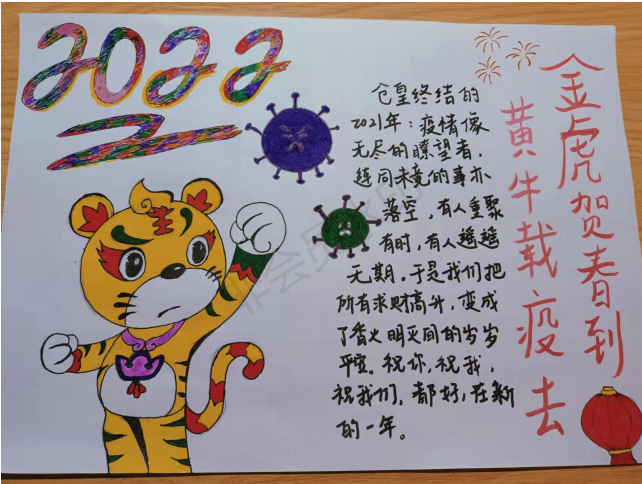 2022
金虎贺春到
黄牛载疫去
仓皇终结的
2021年：疫情像
无尽的瞭望者，
连同未竟的事亦
落空，有人重聚
有时，有人遥遥
无期，于是我们把
所有求财高升，变成
了香火明灭间的岁岁
平安。祝你，祝我，
祝我们，都好，在新
的一年。